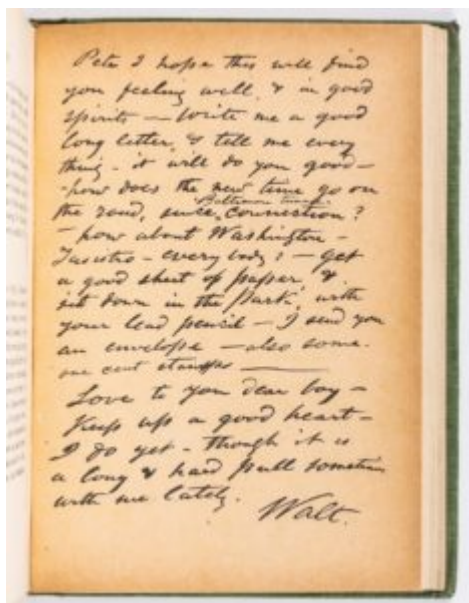 Pete I hope this will find
you feeling well, & in good
spirits — Write me a good
long letter, & tell me every
thing - it will do you good —
- how does the new time go on
the road, since Baltimore tunnel connection?
- how about Washington -
Tasistro - every body? - get
a good sheet of paper, &
sit down in the Park, with
your lead pencil — I send you
an envelope — also some
one cent stamps
Love to you dear boy —
Keep up a good heart —
I do yet - though it is
a long & hard pull sometimes
with me lately.
Walt.